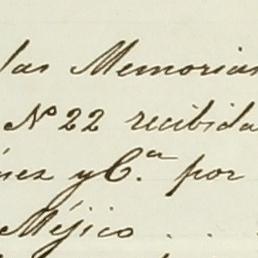 las Memorias
Nº 22 recibida
nez y C.ª por
Méjico . . .